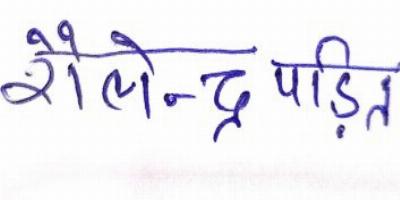 शैलेन्द्र पाड़ित